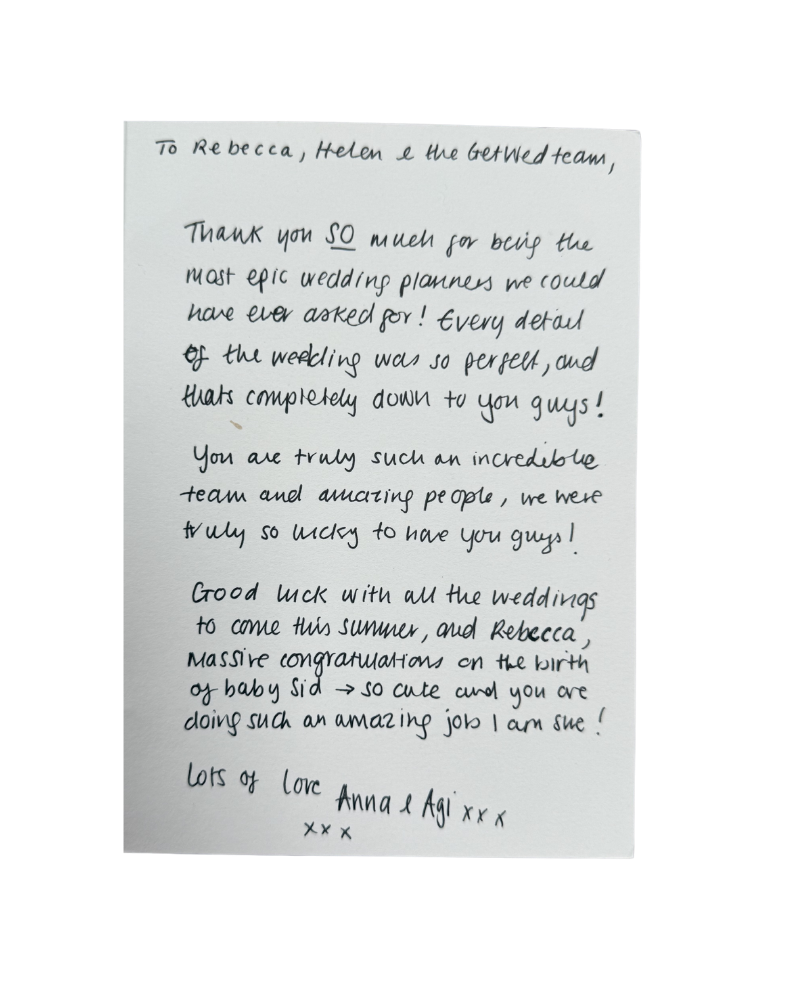 To Rebecca, Helen & the GetWed team,
Thank you SO much for being the
most epic wedding planners we could
have ever asked for! Every detail
of the wedding was so perfect, and
thats completely down to you guys!
You are truly such an incredible
team and amazing people, we were
truly so lucky to have you guys!
Good luck with all the weddings
to come this summer, and Rebecca,
Massive congratulations on the birth
of baby Sid → so cute and you are
doing such an amazing job I am sure!
Lots of love Anna & Agi xxx
xxx